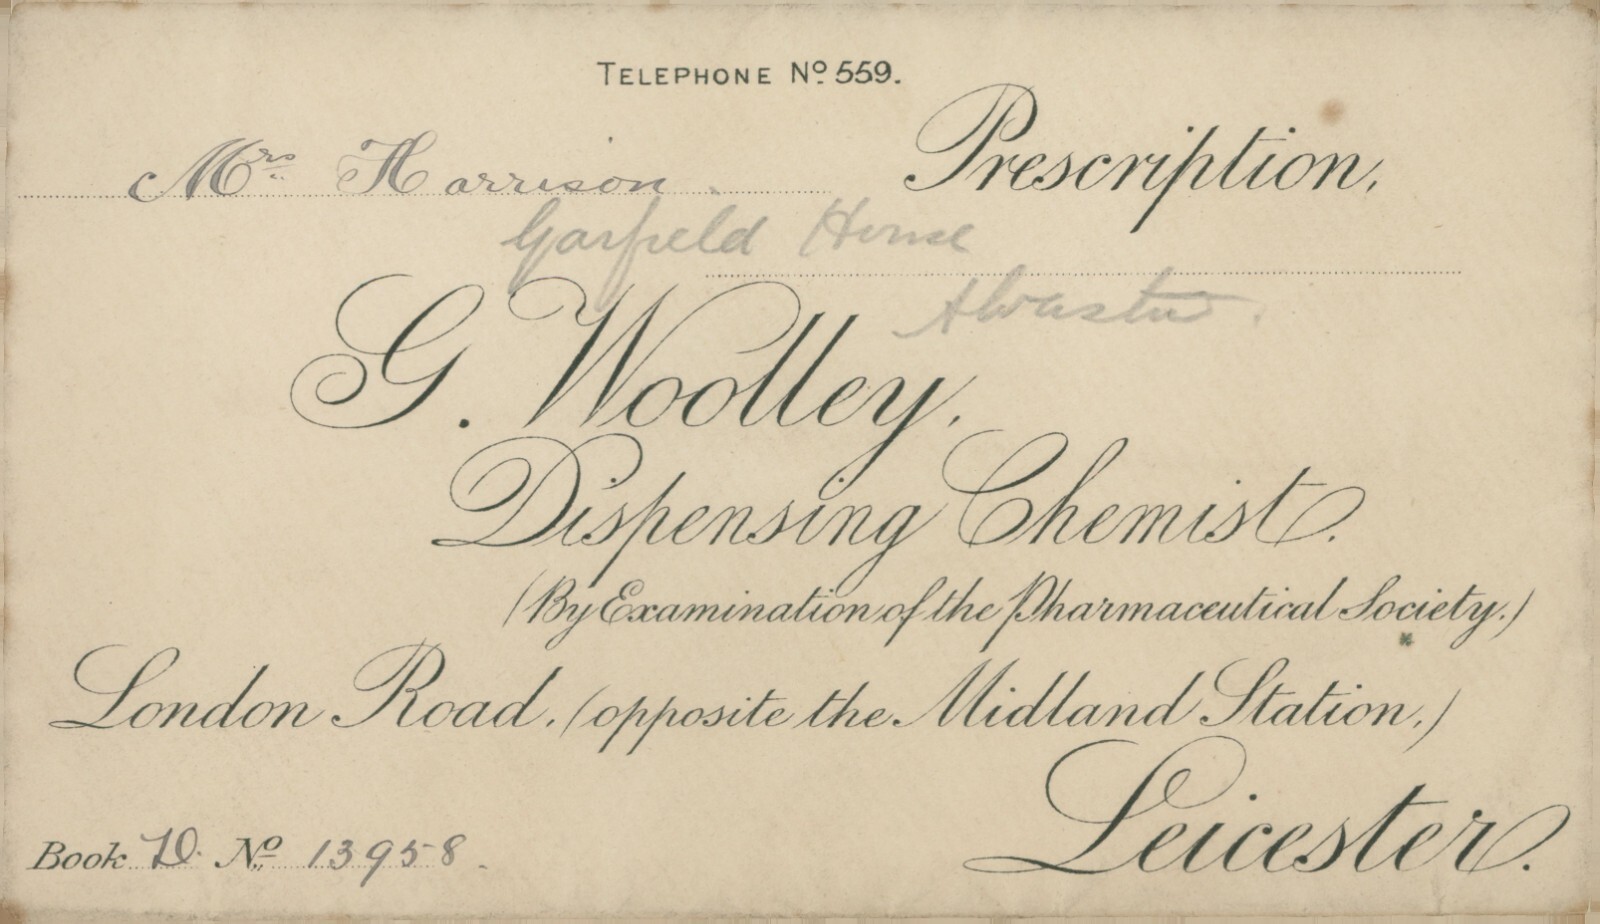 TELEPHONE No. 559.
Mrs. Harrison. Prescription,
Garfield House
Alvaston.
G. Woolley,
Dispensing Chemist.
(By Examination of the Pharmaceutical Society.)
London Road, (opposite the Midland Station,)
Leicester.
Book D. No. 13958.